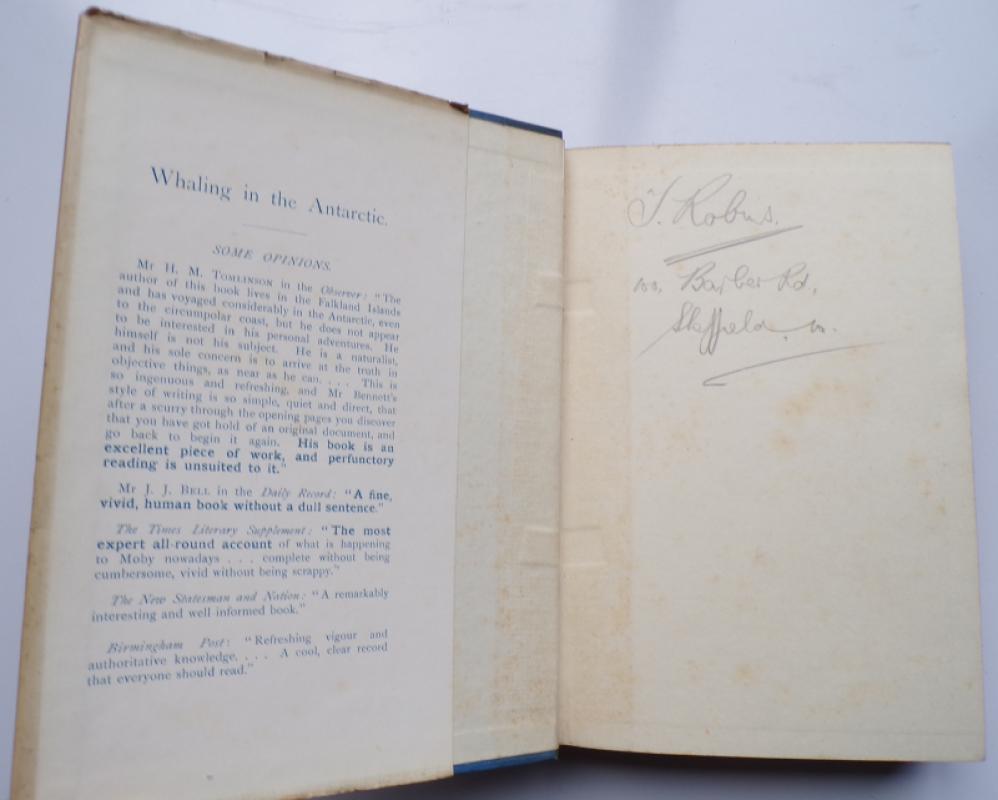 Whaling in the Antarctic.
SOME OPINIONS.
Mr H. M. TOMLINSON in the Observer: "The
author of this book lives in the Falkland Islands
and has voyaged considerably in the Antarctic, even
to the circumpolar coast, but he does not appear
to be interested in his personal adventures. He
himself is not his subject. He is a naturalist,
and his sole concern is to arrive at the truth in
objective things, as near as he can. . . . This is
so ingenuous and refreshing, and Mr Bennett's
style of writing is so simple, quiet and direct, that
after a scurry through the opening pages you discover
that you have got hold of an original document, and
go back to begin it again. His book is an
excellent piece of work, and perfunctory
reading is unsuited to it."
Mr J. J. BELL in the Daily Record: "A fine,
vivid, human book without a dull sentence."
The Times Literary Supplement: "The most
expert all-round account of what is happening
to Moby nowadays . . . complete without being
cumbersome, vivid without being scrappy."
The New Statesman and Nation: "A remarkably
interesting and well informed book."
Birmingham Post: "Refreshing vigour and
authoritative knowledge. . . . A cool, clear record
that everyone should read."
Barber Rd,
Sheffield